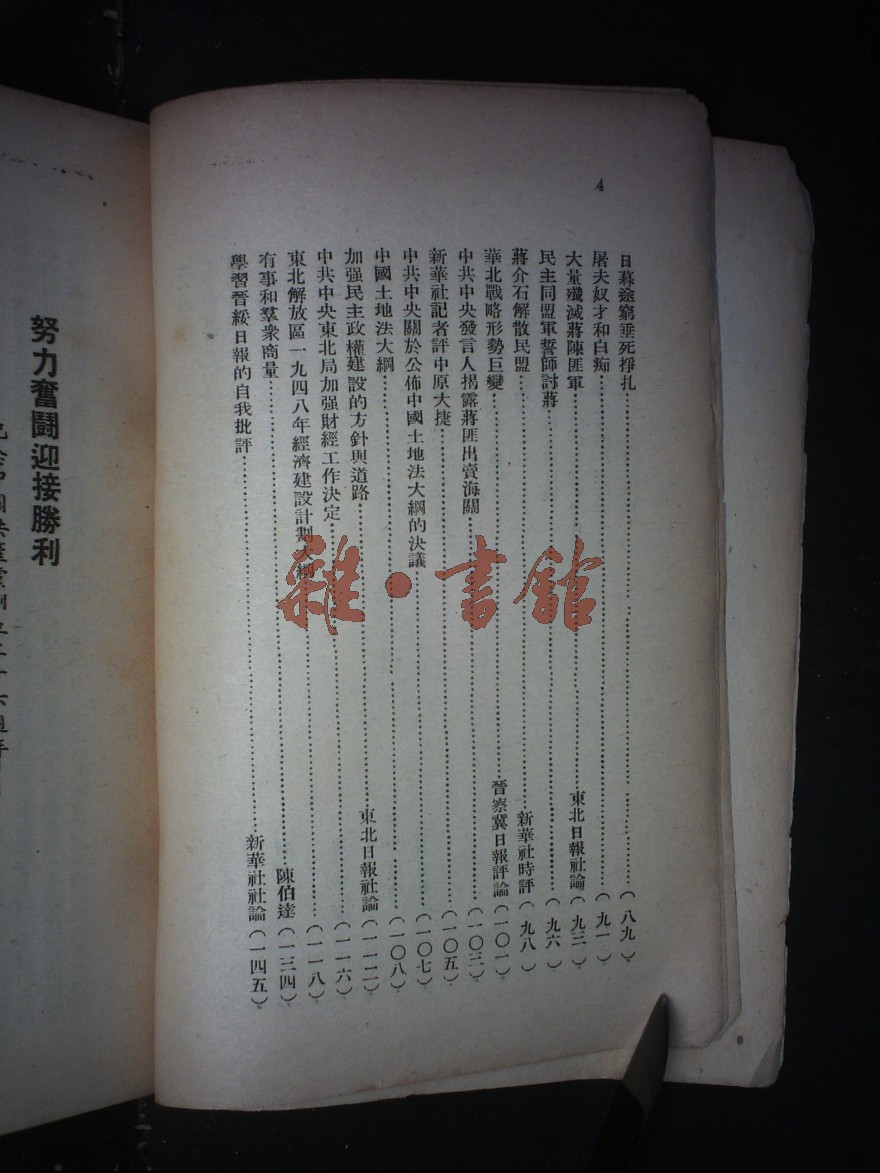 4
日暮途窮垂死掙扎………(八九)
屠夫奴才和白痴………(九一)
大量殲滅蔣陳匪軍………東北日報社論(九三)
民主同盟軍誓師討蔣………(九六)
蔣介石解散民盟………新華社時評(九八)
華北戰略形勢巨變………晉察冀日報評論(一〇一)
中共中央發言人揭露蔣匪出賣海關………(一〇三)
新華社記者評中原大捷………(一〇五)
中共中央關於公佈中國土地法大綱的決議………(一〇七)
中國土地法大綱………(一〇八)
加强民主政權建設的方針與道路………東北日報社論(一一二)
中共中央東北局加强財經工作決定………(一一六)
東北解放區一九四八年經濟建設計劃大綱………(一一八)
有事和羣衆商量………陳伯達(一三四)
學習晉綏日報的自我批評………新華社社論(一四五)
努力奮鬪迎接勝利
雜·書館